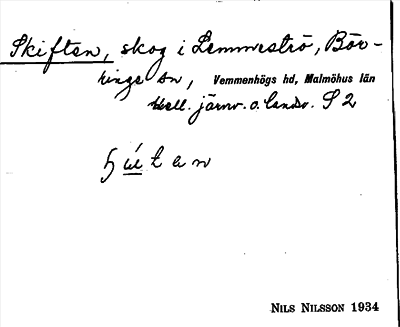 Skiften, skog i Lemmeströ, Bör-
ringe sn, Vemmenhögs hd, Malmöhus län
mell. järnv. o. landsv. S 2
ɧ úi t a n
NILS NILSSON 1934